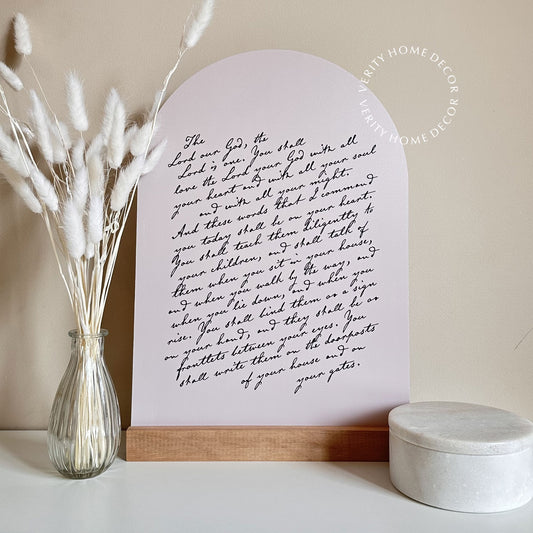 The
Lord our God, the
Lord is one. You shall
love the Lord your God with all
your heart and with all your soul
and with all your might.
And these words that I command
you today shall be on your heart.
You shall teach them diligently to
your children, and shall talk of
them when you sit in your house,
and when you walk by the way, and
when you lie down, and when you
rise. You shall bind them as a sign
on your hand, and they shall be as
frontlets between your eyes. You
shall write them on the doorposts
of your house and on
your gates.
VERITY HOME DECOR
VERITY HOME DECOR